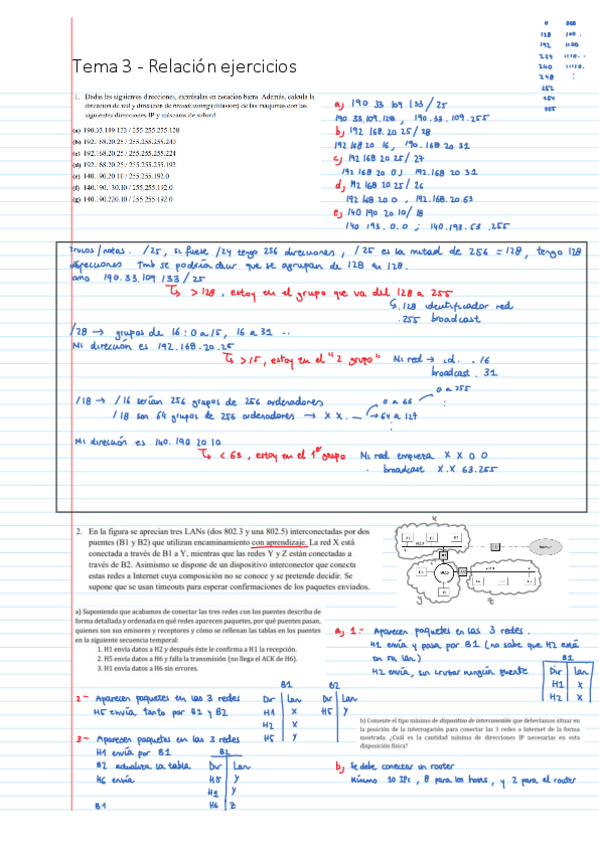 0 000
128 100.
192 1100
224 1110..
240 11110..
248 :
252
254
255
Tema 3 - Relación ejercicios
1. Dadas las siguientes direcciones, expréselas en notación barra. Además, calcula la
dirección de red y dirección de broadcasting (difusión) de las máquinas con las
siguientes direcciones IP y máscaras de subred
(a) 190.33.109.133 / 255.255.255.128
(b) 192.168.20.25 / 255.255.255.240
(c) 192.168.20.25 / 255.255.255.224
(d) 192.168.20.25 / 255.255.255.192
(e) 140.190.20.10 / 255.255.192.0
(f) 140.190.130.10 / 255.255.192.0
(g) 140.190.220.10 / 255.255.192.0
a) 190 33 109 133 / 25
190 33.109.128 , 190.33.109.255
b) 192 168.20 25 / 28
192 168 20 16, 190.168.20 31
c) 192 168 20 25 / 27
192 168 20 0, 192.168 20 31
d) 192 168 20 25 / 26
192 168 20 0 , 192.168.20.63
e) 140 190 20 10 / 18
140 193.0.0 ; 140.193.63.255
Trucos/notas. /25, si fuese /24 tengo 256 direcciones, /25 es la mitad de 256 = 128, tengo 128
direcciones Tmb se podría decir que se agrupan de 128 en 128.
como 190.33.109 133 / 25
> 128, estoy en el grupo que va del 128 a 255
.128 identificador red
.255 broadcast
/28 → grupos de 16: 0 a 15, 16 a 31 ..
Mi dirección es 192.168.20.25
> 15, estoy en el "2 grupo" Mi red → id. .16
broadcast. 31
0 a 255
/18 → /16 serían 256 grupos de 256 ordenadores 0 a 63 :
/18 son 64 grupos de 256 ordenadores → X X. — 64 a 127
:
Mi dirección es 140.190 20 10
< 63, estoy en el 1er grupo Mi red empieza X X 0 0
. broadcast X.X 63.255
2. En la figura se aprecian tres LANs (dos 802.3 y una 802.5) interconectadas por dos
puentes (B1 y B2) que utilizan encaminamiento con aprendizaje. La red X está
conectada a través de B1 a Y, mientras que las redes Y y Z están conectadas a
través de B2. Asimismo se dispone de un dispositivo interconector que conecta
estas redes a Internet cuya composición no se conoce y se pretende decidir. Se
supone que se usan timeouts para esperar confirmaciones de los paquetes enviados.
x
y
z
a) Suponiendo que acabamos de conectar las tres redes con los puentes describa de
forma detallada y ordenada en qué redes aparecen paquetes, por qué puentes pasan,
quienes son sus emisores y receptores y cómo se rellenan las tablas en los puentes
en la siguiente secuencia temporal:
1. H1 envía datos a H2 y después éste le confirma a H1 la recepción.
2. H5 envía datos a H6 y falla la transmisión (no llega el ACK de H6).
3. H1 envía datos a H6 sin errores.
a) 1- Aparecen paquetes en las 3 redes.
H1 envía y pasa por B1 (no sabe que H2 está
en su lan)
H2 envía, sin cruzar ningún puente
B1
Dir Lan
H1 X
H2 X
2- Aparecen paquetes en las 3 redes
H5 envía tanto por B1 y B2
B1
Dir Lan
H1 X
H2 X
H5 Y
B2
Dir Lan
H5 Y
3- Aparecen paquetes en las 3 redes
H1 envía por B1
B2 actualiza la tabla
H6 envía
B2
Dir Lan
H5 Y
H1 Y
H6 Z
B1
b) Comente el tipo mínimo de dispositivo de interconexión que deberíamos situar en
la posición de la interrogación para conectar las 3 redes a Internet de la forma
mostrada. ¿Cuál es la cantidad mínima de direcciones IP necesarias en esta
disposición física?
b) Se debe conectar un router
Mínimo 10 IPs, 8 para los hosts, y 2 para el router